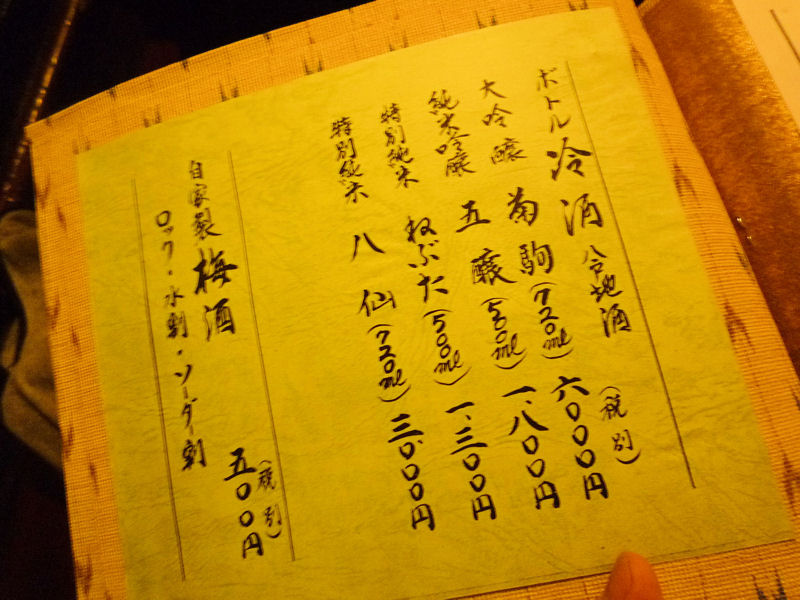 ボトル冷酒 八戸地酒 (税別)
大吟醸 菊駒(720ml) 六〇〇〇円
純米吟醸 五醸(500ml) 一、八〇〇円
特別純米 ねぶた(500ml) 一、三〇〇円
特別純米 八仙(720ml) 三、〇〇〇円
自家製梅酒 (税別) 五〇〇円
ロック・水割・ソーダー割